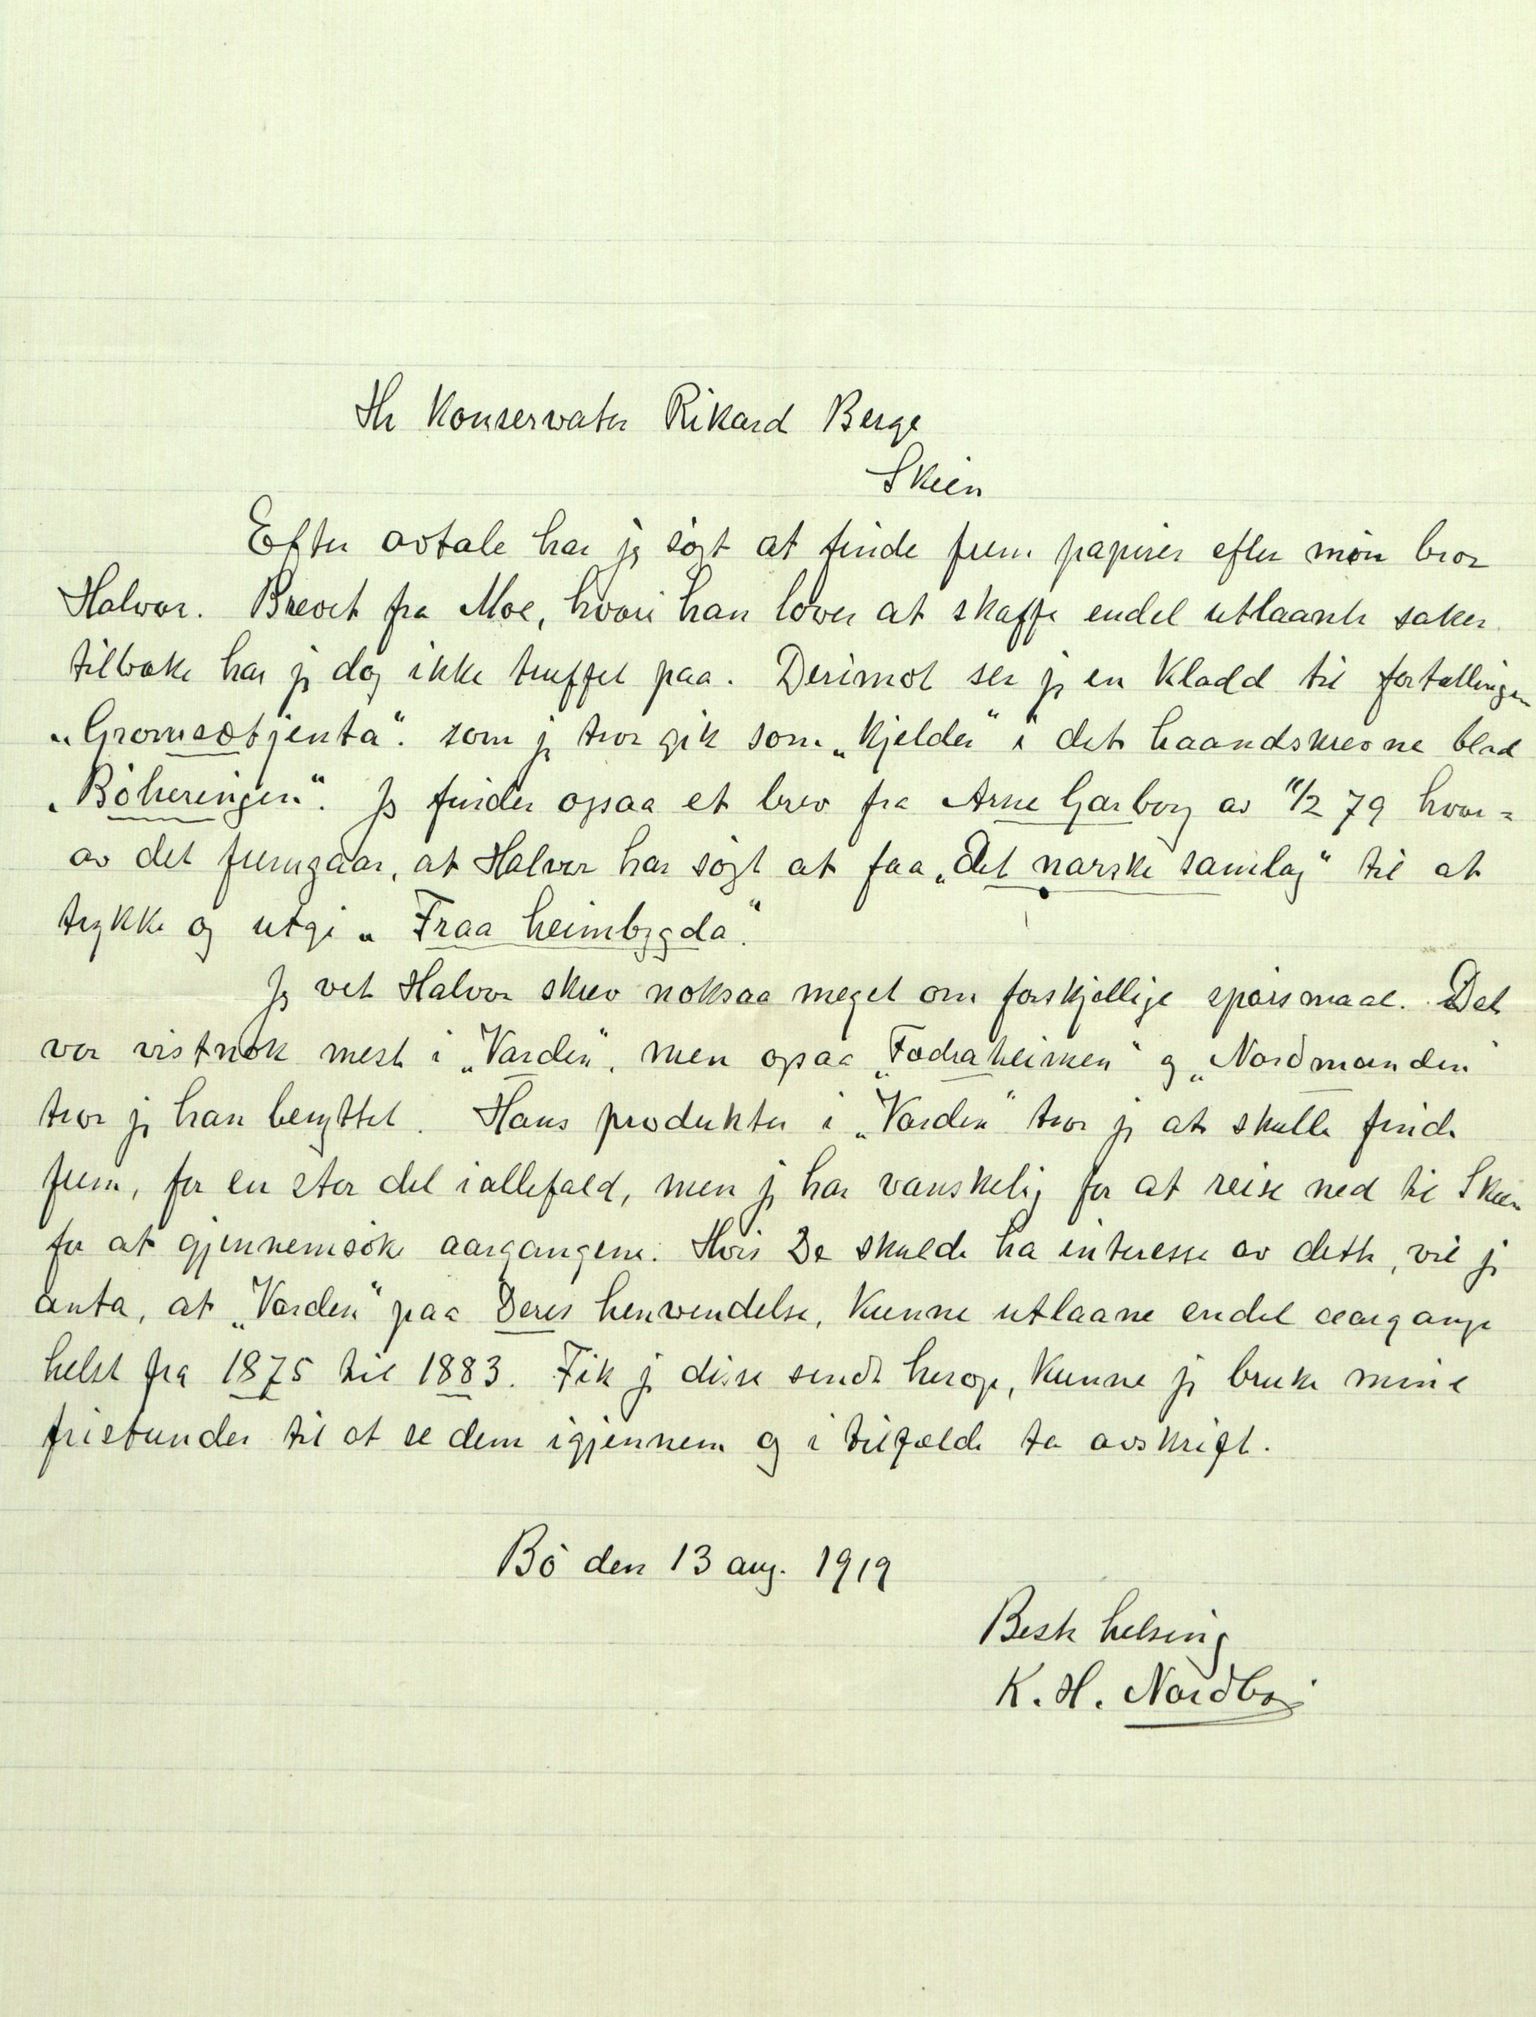 Hr Konservator Rikard Berge
Skien
Efter avtale har jeg søgt at finde frem papirer efter min bror
Halvor. Brevet fra Moe, hvori han lover at skaffe endel utlaante saker
tilbake har jeg dog ikke truffet paa. Derimot ser jeg en kladd til fortællingen
"Gromsøtjenta". som jeg tror gik som "Kjelder" i det haandskrevne blad
"Bøheringen". Jeg finder ogsaa et brev fra Arne Garborg av 11/2 79 hvor=
av det fremgaar, at Halvor har søgt at faa "Det norske samlag" til at
trykke og utgi "Fraa heimbygda".
Jeg vet Halvor skrev noksaa meget om forskjellige spørsmaal. Det
var vistnok mest i "Varden", men ogsaa "Fedraheimen" og "Nordmanden"
tror jeg han benyttet. Hans produkter i "Varden" tror jeg at skulle finde
frem, for en stor del iallefald, men jeg har vanskelig for at reise ned til Skien
for at gjennemsøke aargangene. Hvis De skulde ha interesse av dette, vil jeg
anta, at "Varden" paa Deres henvendelse, kunne utlaane endel aargange
helst fra 1875 til 1883. Fik jeg disse sendt herop, kunne jeg bruke mine
fristunder til at se dem igjennem og i tilfælde ta avskrift.
Bø den 13 aug. 1919
Beste helsing
K. H. Nordbø